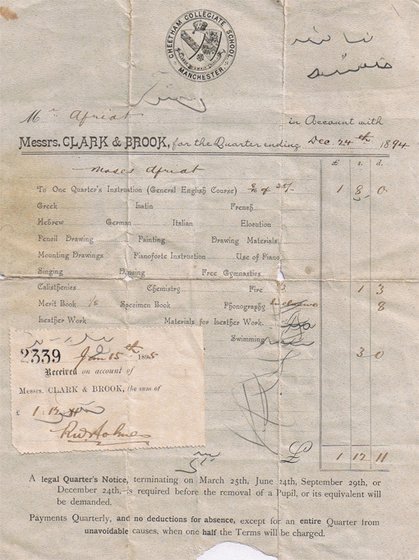 CHEETHAM COLLEGIATE SCHOOL
MANCHESTER
Mr Afriat
in Account with
Messrs. CLARK & BROOK, for the Quarter ending Dec. 24th 1894
Moses Afriat £ s. d.
To One Quarter's Instruction (General English Course) 1 8 0
Greek Latin French
Hebrew German Italian Elocution
Pencil Drawing Painting Drawing Materials
Mounting Drawings Pianoforte Instruction Use of Piano
Singing Dancing Free Gymnastics
Calisthenics Chemistry Fire 1 3
Merit Book Specimen Book Phonography 8
Leather Work Materials for Leather Work.
Swimming
3 0
2339 Jan 15th
Received on account of
Messrs. CLARK & BROOK, the sum of
£ 1.12
R W Holmes
£ 1 12 11
A legal Quarter's Notice, terminating on March 25th, June 24th, September 29th, or
December 24th, is required before the removal of a Pupil, or its equivalent will
be demanded.
Payments Quarterly, and no deductions for absence, except for an entire Quarter from
unavoidable causes, when one half the Terms will be charged.